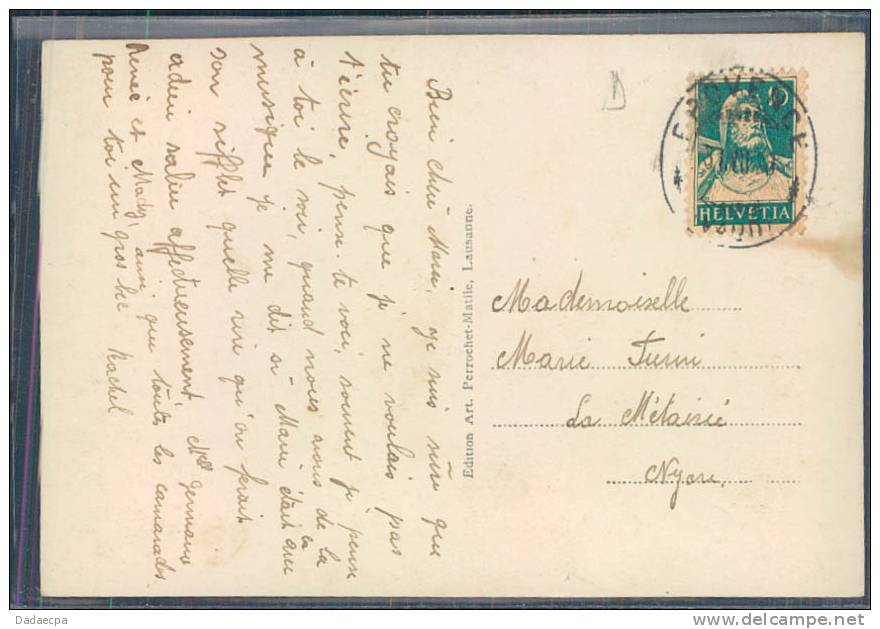 Bien chère Marie, je suis sûre que
tu croyais que je ne voulais pas
t'écrire, pense-te voir, souvent je pense
à toi le soir, quand nous avons de la
musique je me dis si Marie était avec
son sifflet quelle rire qu'on ferait
adieu salue affectueusement, Mlle Germaine
Renée et Mady, ainsi que toutes les camarades
pour toi un gros bec Rachel
Edition Art. Perrochet-Matile, Lausanne.
HELVETIA
Mademoiselle
Marie
La Métairie
Nyon.
Dadaecpa
www.delcampe.net